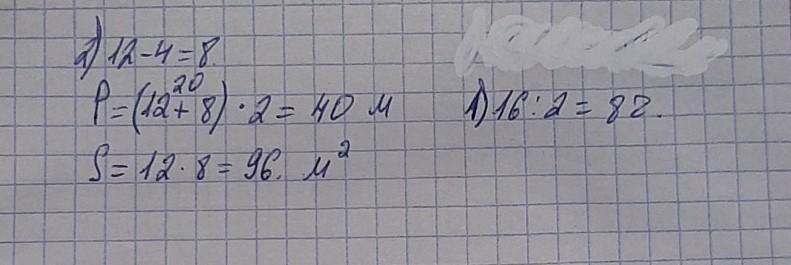 2) 12-4=8
20
P=(12+8)·2=40 м
S=12·8=96. м²
1) 16:2=8г.